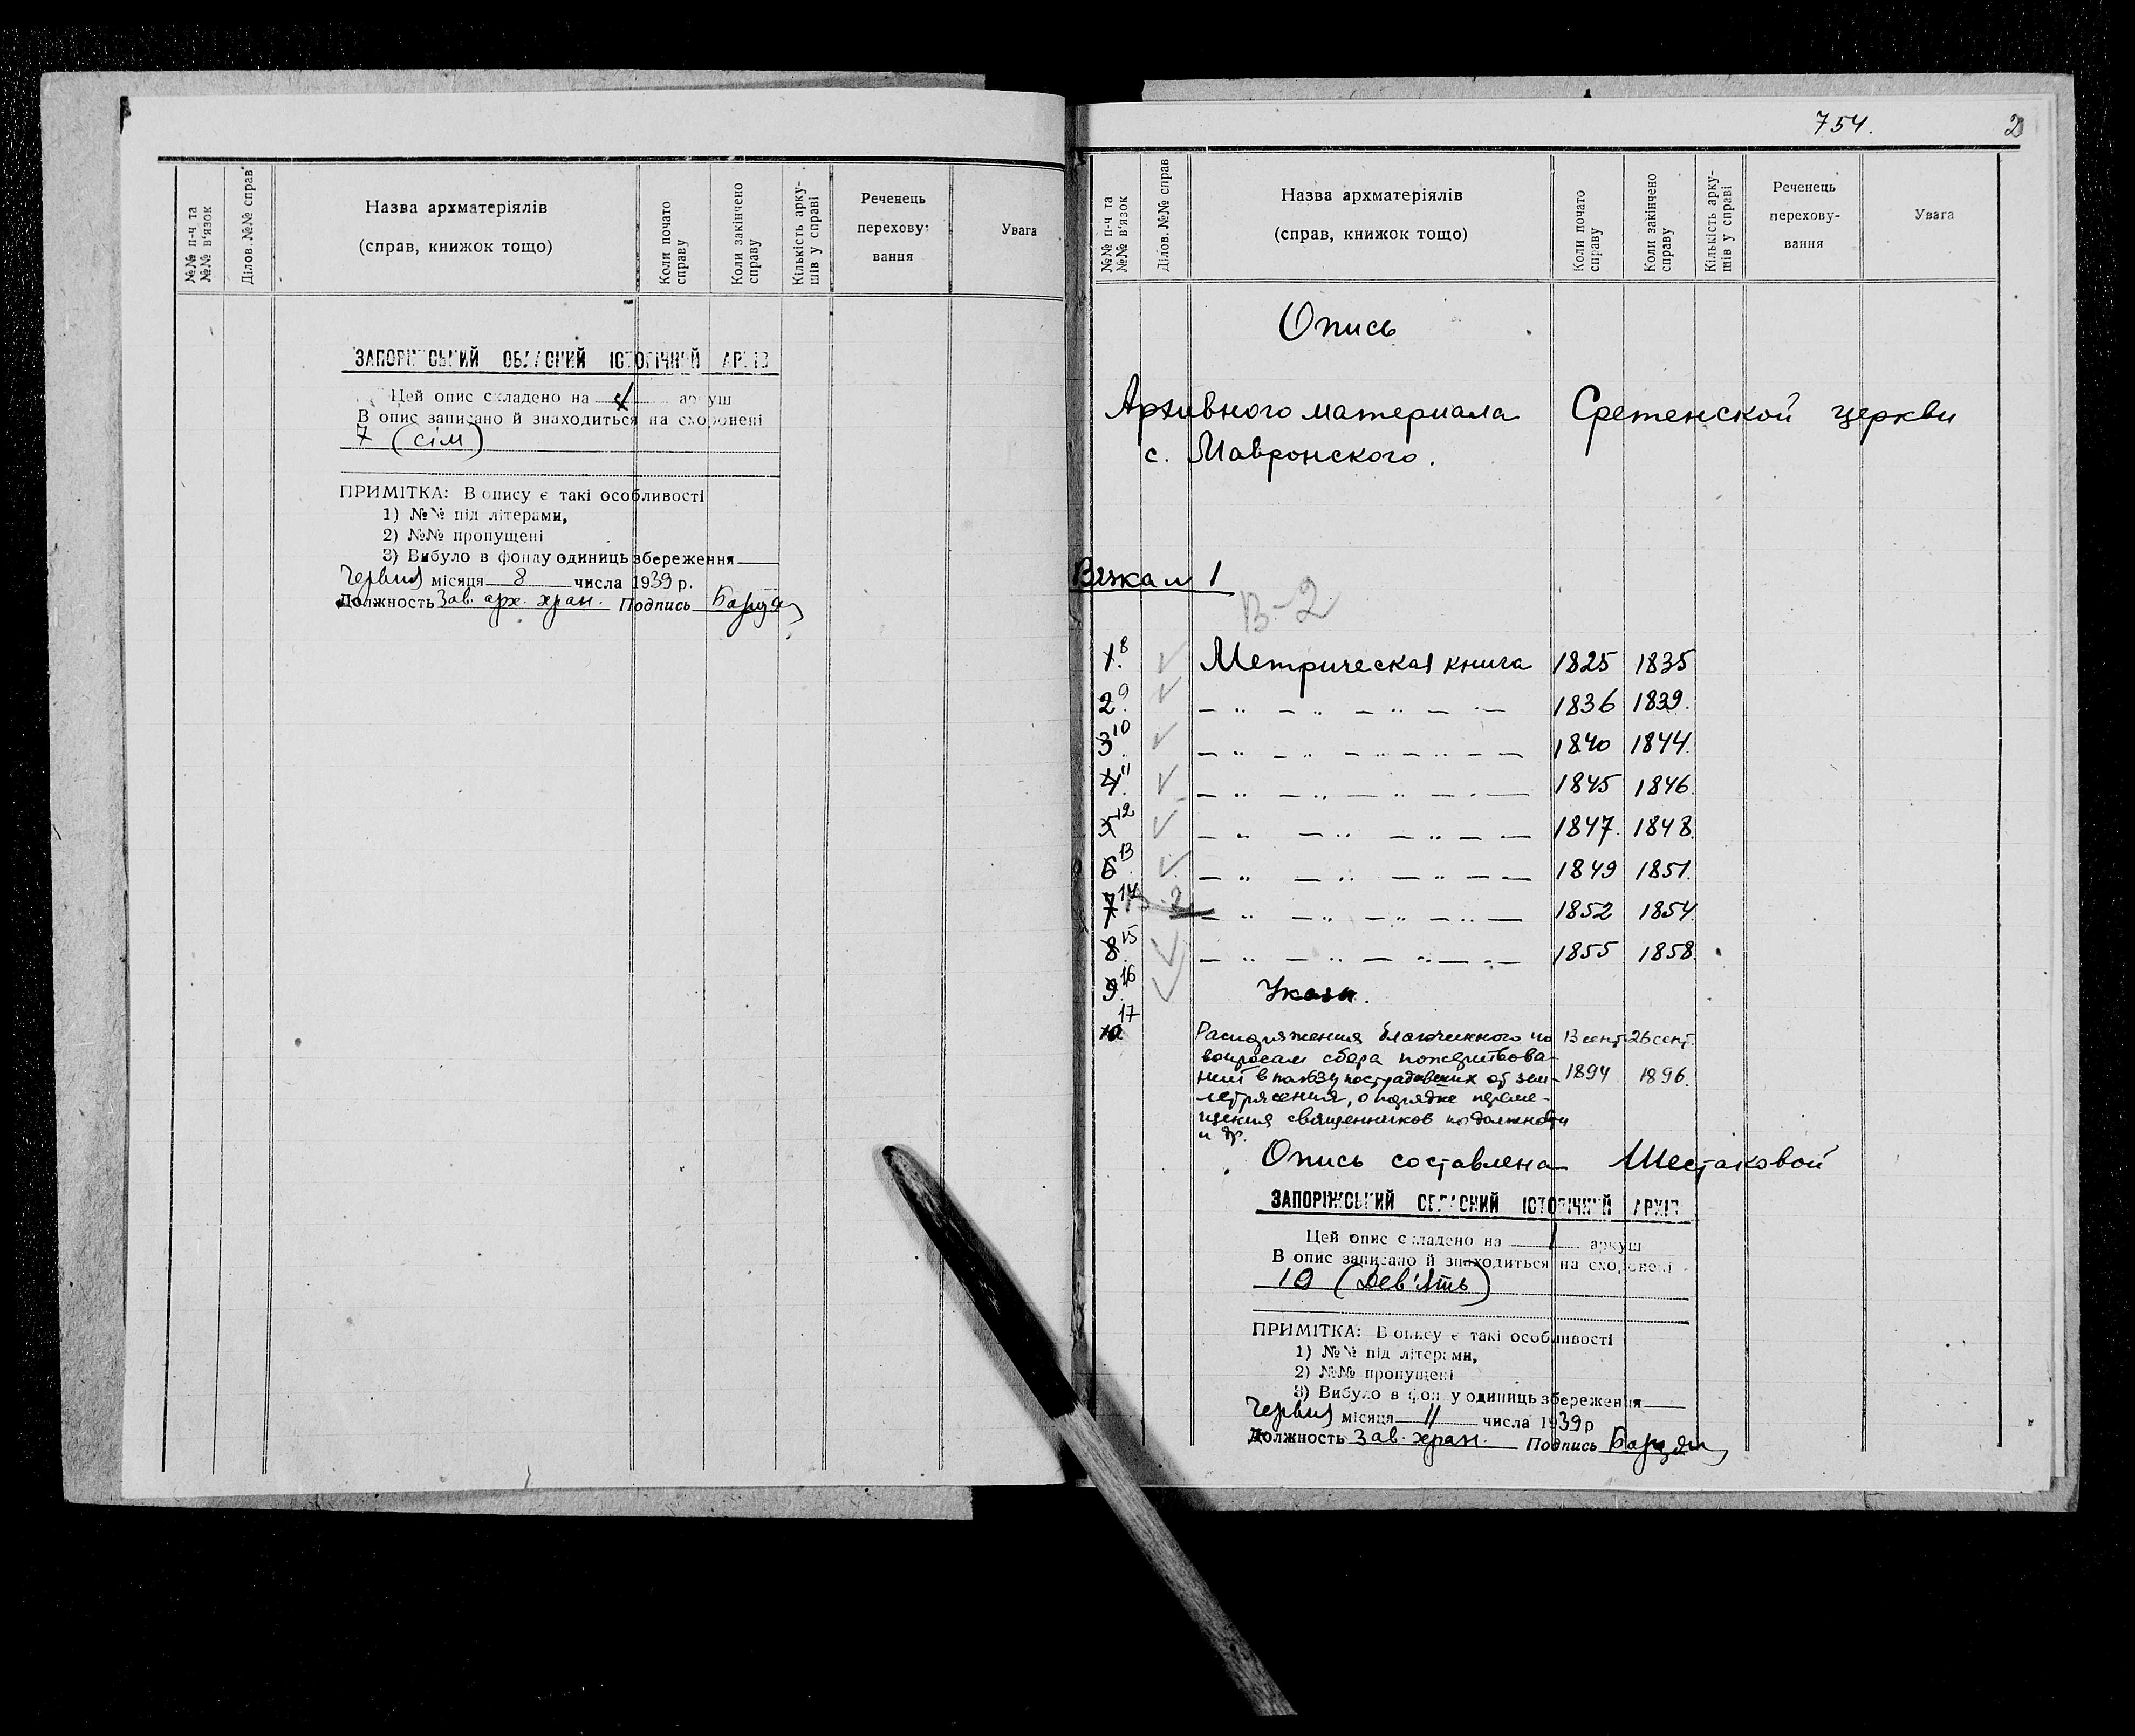 №№ п-ч та №№ в'язок
Ділов. №№ справ
Назва архматеріялів
(справ, книжок тощо)
Коли почато справу
Коли закінчено справу
Кількість арку-
шів у справі
Реченець
перехову-
вання
Увага
ЗАПОРІЖСЬКИЙ ОБЛАСНИЙ ІСТОРІЧНИЙ АРХІВ
Цей опис складено на аркуш
В опис записано й знаходиться на схоронені
7 (сім)
ПРИМІТКА: В опису є такі особливості
1) №№ під літерами,
2) №№ пропущені
3) Вибуло в фонду одиниць збереження
Червня місяця 8 числа 1939 р.
Должность Зав. арх. хран. Подпись
754. 2
№№ п-ч та №№ в'язок
Ділов. №№ справ
Назва архматеріялів
(справ, книжок тощо)
Коли почато справу
Коли закінчено справу
Кількість арку-
шів у справі
Реченець
перехову-
вання
Увага
Опись
Архивного материала Сретенской церкви
с. Мавронского.
Вязка 1
В-2
1. 8 Метрическая книга 1825 1835
2. 9 — „ — „ — „ — „ — 1836 1839.
3. 10 — „ — „ — „ — „ — 1840 1844.
4. 11 — „ — „ — „ — „ — 1845 1846.
5. 12 — „ — „ — „ — „ — 1847. 1848.
6. 13 — „ — „ — „ — „ — 1849 1851.
7. 14 В-2 — „ — „ — „ — „ — 1852 1854.
8. 15 — „ — „ — „ — „ — 1855 1858.
9. 16 Указы.
10 17 Распоряжения благочинного по 13 сент. 26 сент.
вопросам сбора пожертвова-
ний в пользу пострадавших от зем- 1894 1896.
летрясения, о порядке переме-
щения священников по должности
и др.
Опись составлена Шестаковой
ЗАПОРІЖСЬКИЙ ОБЛАСНИЙ ІСТОРІЧНИЙ АРХІВ
Цей опис складено на 1 аркуш
В опис записано й знаходиться на схоронені
10 (Дев'ять)
ПРИМІТКА: В опису є такі особливості
1) №№ під літерами,
2) №№ пропущені
3) Вибуло в фонду одиниць збереження
Червня місяця 11 числа 1939 р
Должность Зав. хран. Подпись